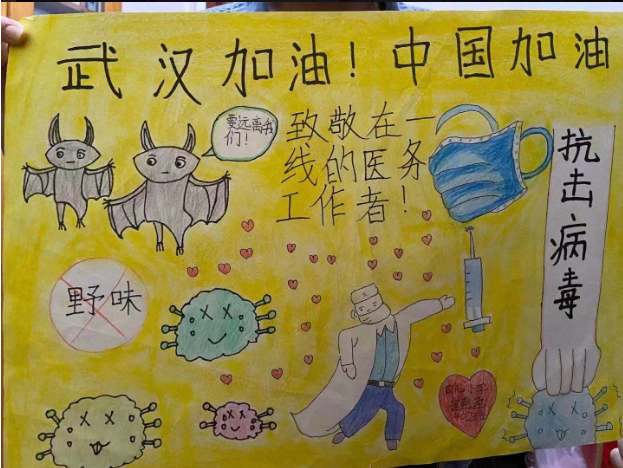 武汉加油！中国加油
要远离我
们！
致敬在一
线的医务
工作者！
抗击病毒
野味